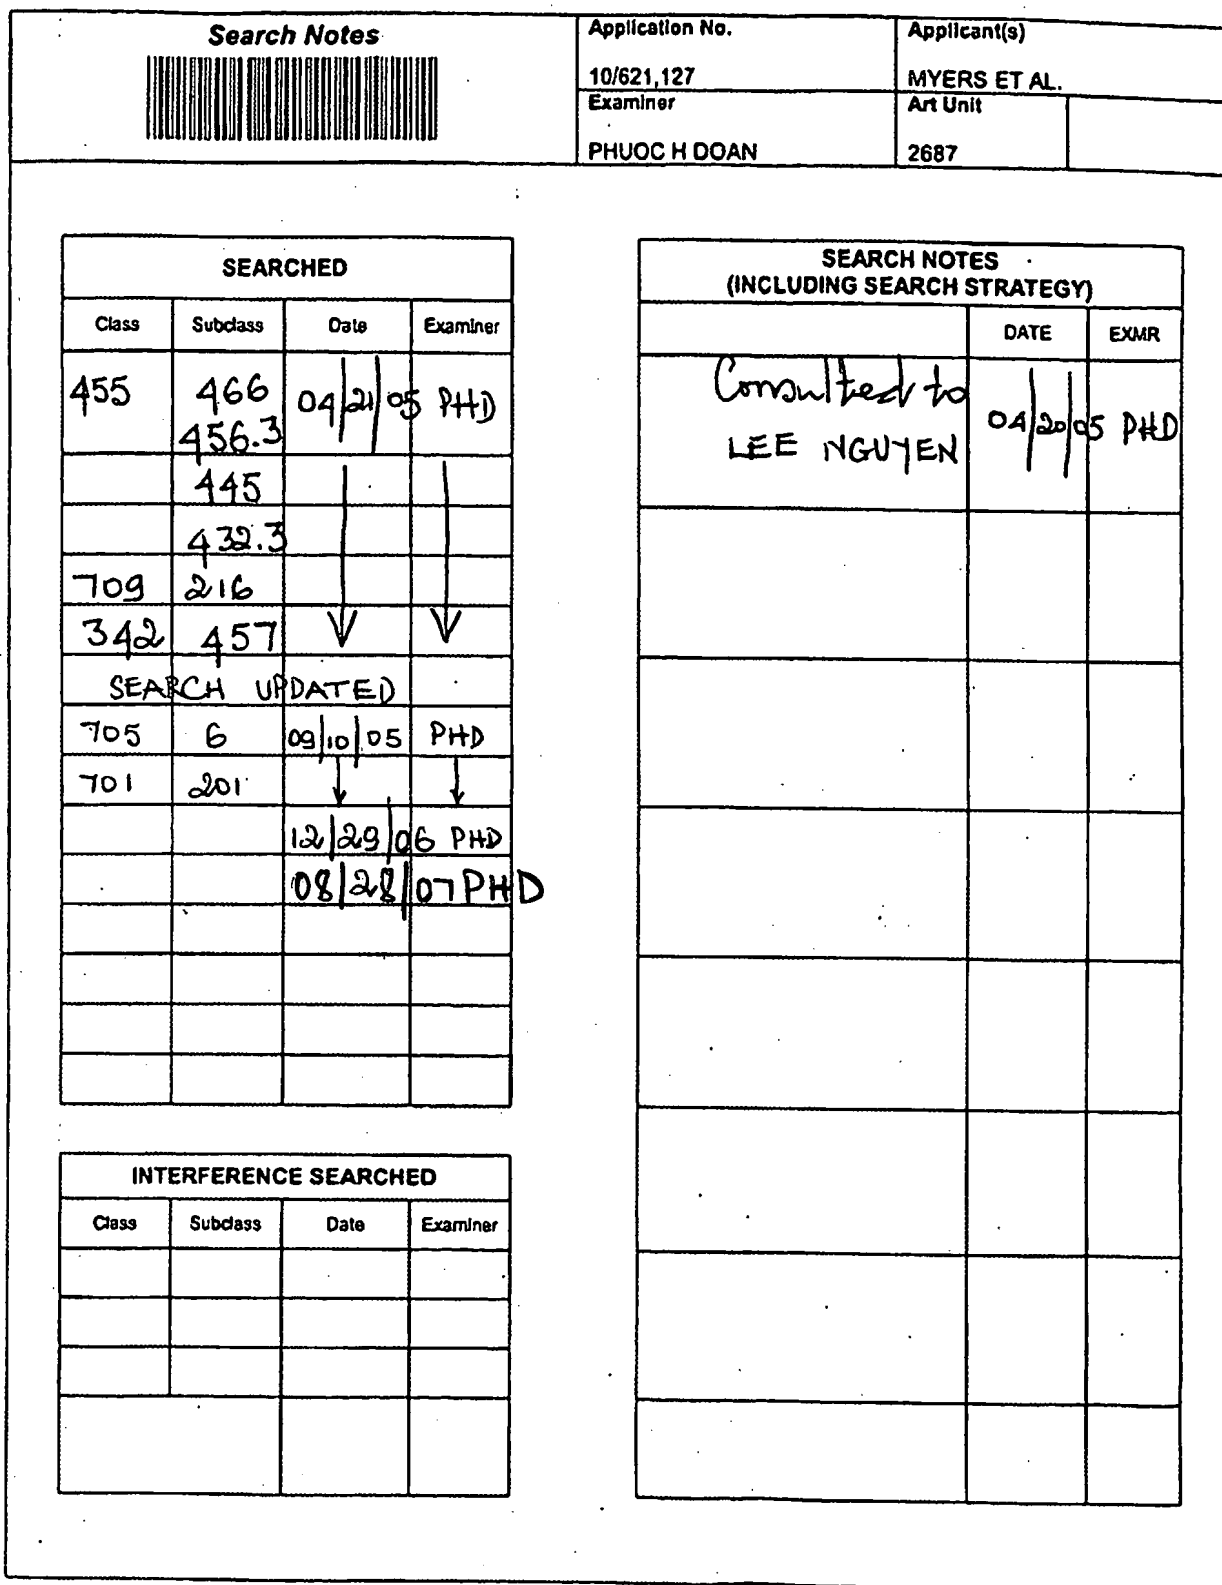 Search Notes
Application No.
10/621,127
Applicant(s)
MYERS ET AL.
Examiner
PHUOC H DOAN
Art Unit
2687
SEARCHED
Class Subclass Date Examiner
455 466 04/21/05 PHD
456.3
445
432.3
709 216
342 457
SEARCH UPDATED
705 6 09/10/05 PHD
701 201
12/29/06 PHD
08/28/07 PHD
INTERFERENCE SEARCHED
Class Subclass Date Examiner
SEARCH NOTES
(INCLUDING SEARCH STRATEGY)
DATE EXMR
Consulted to
LEE NGUYEN 04/20/05 PHD